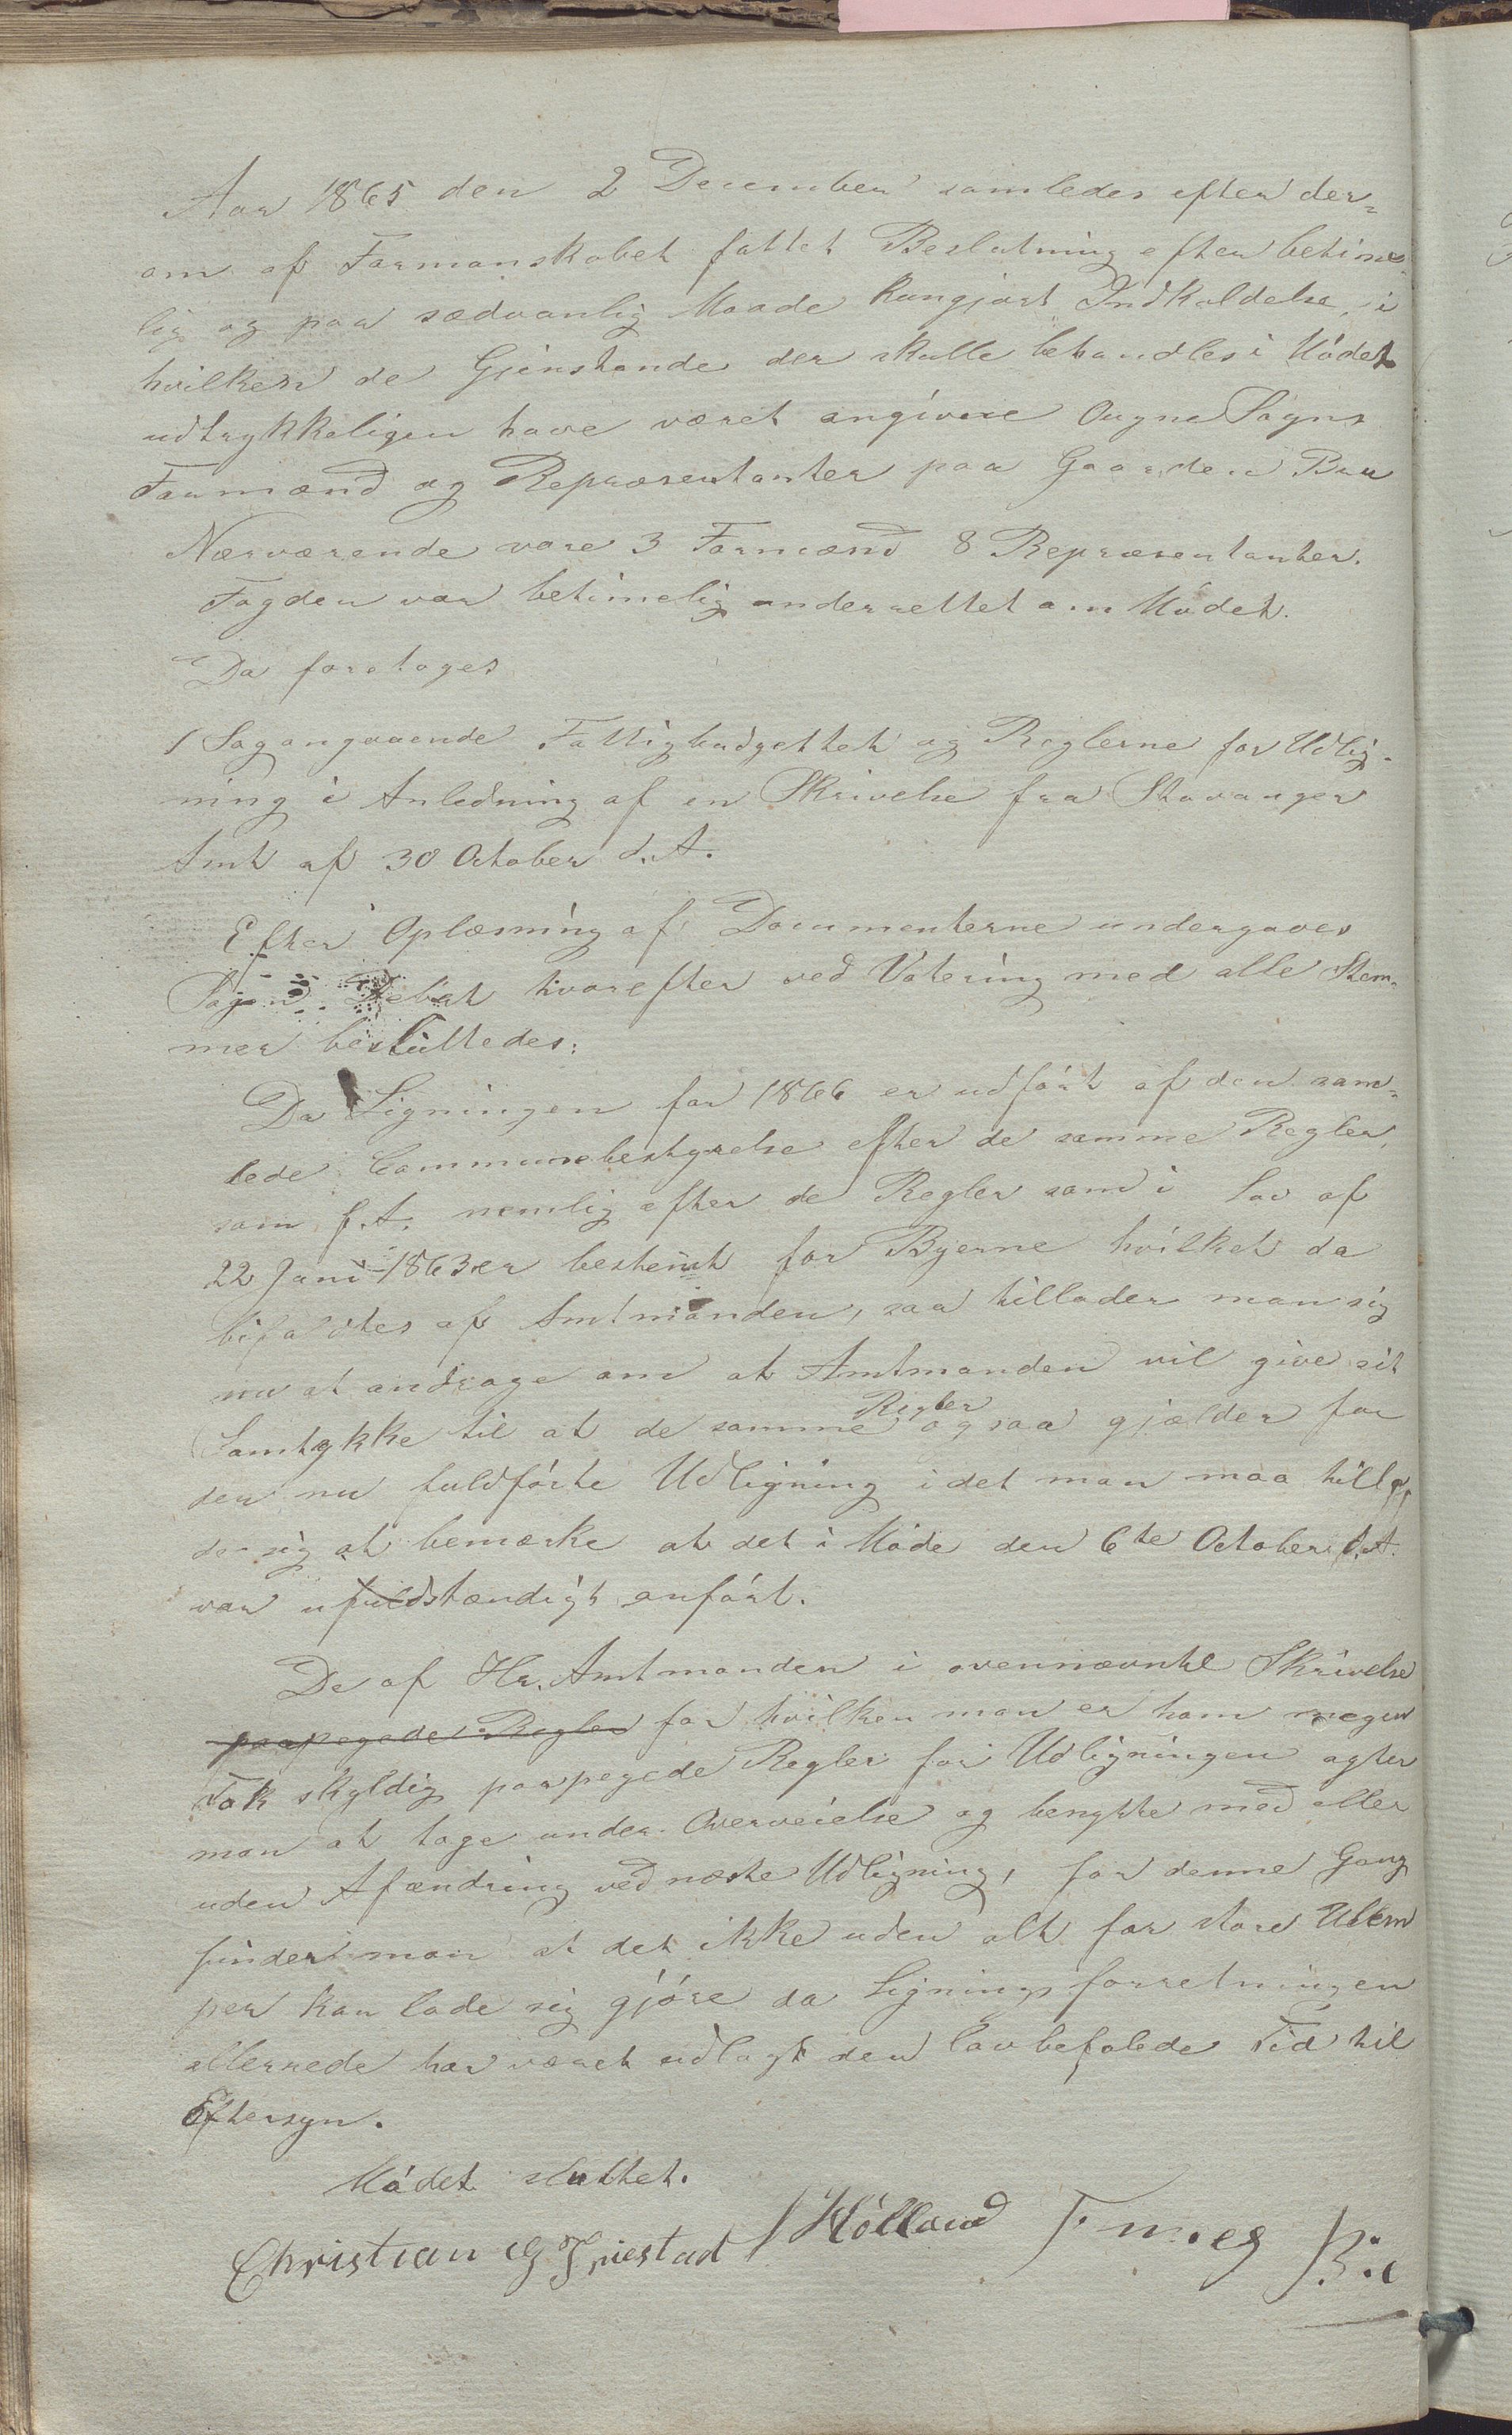 Aar 1865 den 2 December samledes efter der=
om af Formanskabet fattet Beslutning efter betime-
lig og paa sædvanlig Maade kungjort Indkaldelse, i
hvilken de Gjenstande der skulle behandles i Mödet
udtrykkeligen have været angivne Ougne Sogns
Formænd og Repræsentanter paa Gaarden Bue
Nærværende vare 3 Formænd 8 Repræsentanter.
Fogden var betimelig underrettet om Mödet.
Da foretoges
1 Sag angaaende Fattigbudgettet og Reglerne for Udlig-
ning i Anledning af en Skrivelse fra Stavanger
Amt af 30 October d.A.
Efter Oplæsning af Documenterne undergaves
Sagen Debat hvorefter ved Votering med alle Stem-
mer besluttedes:
Da Ligningen for 1866 er udfört af den sam-
lede Communebestyrelse efter de samme Regler,
som f.A. nemlig efter de Regler som i Lov af
22 Juni 1863 er bestemt for Byerne hvilket da
bifaldtes af Amtmanden, saa tillader man sig
nu at andrage om at Amtmanden vil give sit
Samtykke til at de samme Regler ogsaa gjælder for
den nu fuldförte Udligning idet man maa tilla
de sig at bemærke at det i Möde den 6te October d.A.
var ufuldstændigt anfört.
De af Hr. Amtmanden i ovennævnte Skrivelse
paapegede Regler for hvilken man er ham megen
Tak skyldig paapegede Regler for Udligningen agter
man at tage under Overveielse og benytte med eller
uden Afændring ved næste Udligning, for denne Gang
finder man at det ikke uden alt for store Ulem
per kan lade sig gjöre da Ligningsforretningen
allerede har været udlagt den lovbefalede Tid til
Eftersyn.
Mödet sluttet.
Christian G Friestad Hölland